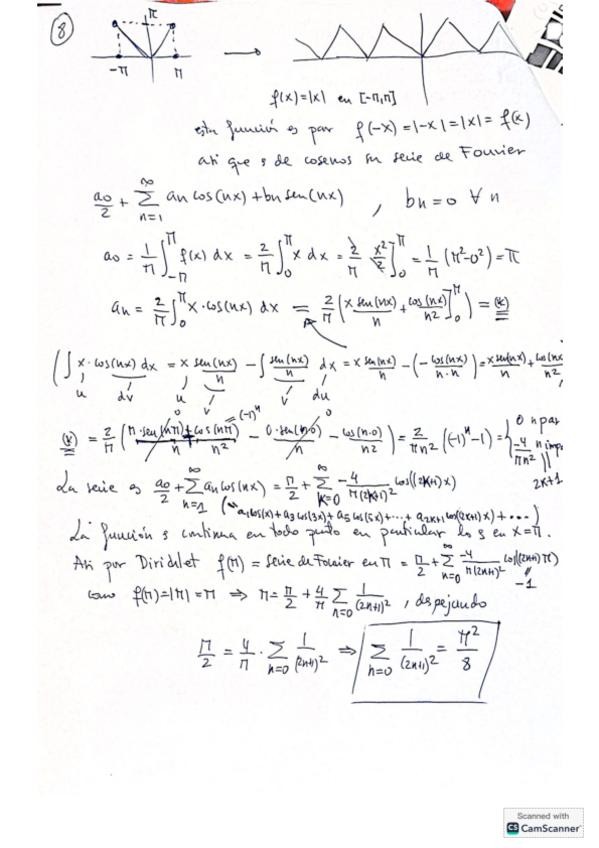 8
π
-π π
f(x)=|x| en [-π,π]
esta función es par f(-x)=|-x|=|x|=f(x)
así que s de cosenos su serie de Fourier
a₀/2 + ∑_{n=1}^{∞} an cos(nx)+bn sen(nx) , bn=0 ∀ n
a₀ = 1/π ∫_{-π}^{π} f(x) dx = 2/π ∫_0^π x dx = 2/π x²/2 ]_0^π = 1/π (π²-0²) = π
an = 2/π ∫_0^π x·cos(nx) dx = 2/π (x sen(nx)/n + cos(nx)/n² ]_0^π) = (*)
(∫ x·cos(nx) dx = x sen(nx)/n - ∫ sen(nx)/n dx = x sen(nx)/n - (-cos(nx)/n·n) = x sen(nx)/n + cos(nx)/n²
u dv u v v du
(*) = 2/π (π·sen(nπ)/n + cos(nπ)/n² - 0·sen(n·0)/n - cos(n·0)/n²) = 2/πn² ((-1)ⁿ-1) = { 0 n par
0 =(-1)ⁿ 0 -4/πn² n imp
2k+1
La serie es a₀/2 + ∑_{n=1}^{∞} an cos(nx) = π/2 + ∑_{k=0}^{∞} -4/π(2k+1)² cos((2k+1)x)
(a₁cos(x)+a₃cos(3x)+a₅cos(5x)+...+a₂ₖ₊₁cos(2k+1)x)+...)
La función s continua en todo punto en particular lo s en x=π.
Así por Dirichlet f(π) = serie de Fourier en π = π/2 + ∑_{n=0}^{∞} -4/π(2n+1)² cos((2n+1)π)
-1
como f(π)=|π|=π ⇒ π=π/2 + 4/π ∑_{n=0} 1/(2n+1)² , despejando
π/2 = 4/π · ∑_{n=0} 1/(2n+1)² ⇒ ∑_{n=0} 1/(2n+1)² = π²/8
Scanned with
CS CamScanner